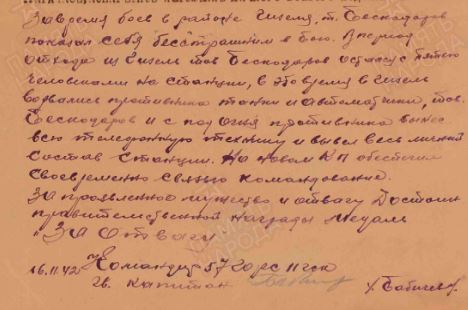 За время боев в районе Гизель, т. Бескодаров
показал себя бесстрашным в бою. В период
отхода из Гизель тов Бескодаров остался с пятью
человеками на станции, в это время в Гизель
ворвались противника танки и автоматчики, тов.
Бескодаров и с под огня противника вынес
всю телефонную технику и вывел весь личный
состав станции. На новом КП обеспечил
своевременно связью командование.
За проявленное мужество и отвагу достоин
правительственной награды медаль
"За отвагу
Командир 57 11 гск
16.11.42 г.
Гв. капитан Бабичев